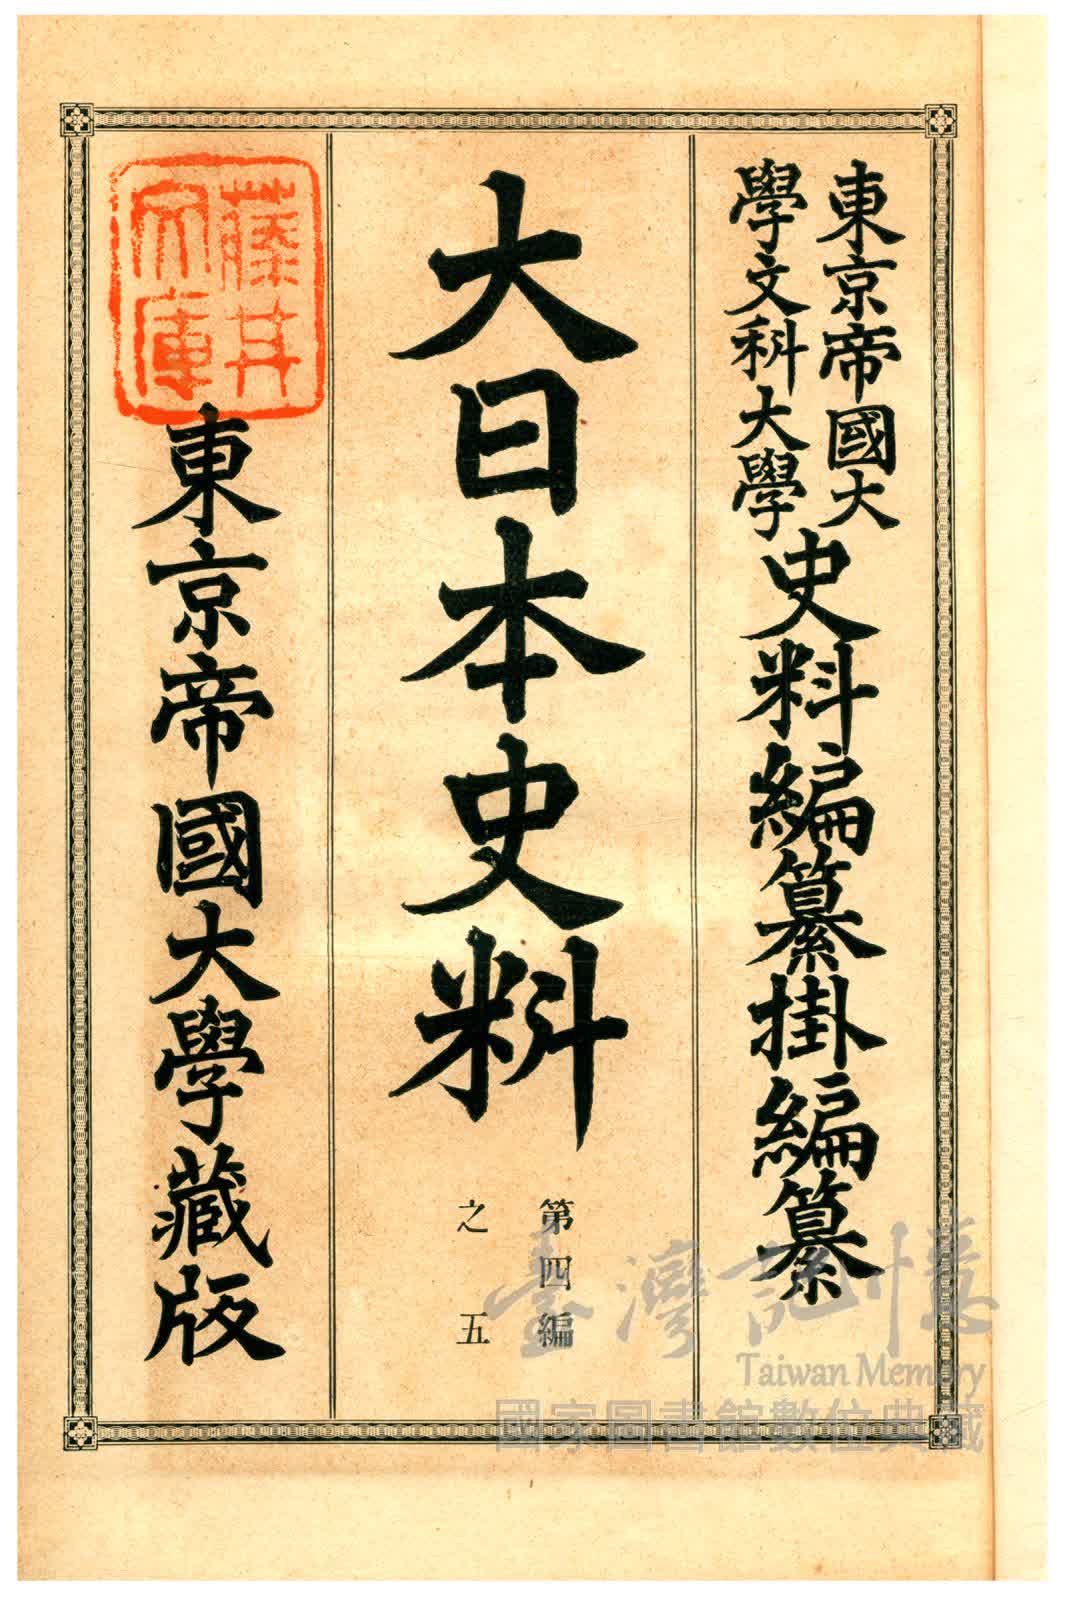 東京帝國大
學文科大學
史料編纂掛編纂
大日本史料
第四編
之五
藤井
文庫
東京帝國大學藏版
臺灣記憶
Taiwan Memory
國家圖書館數位典藏